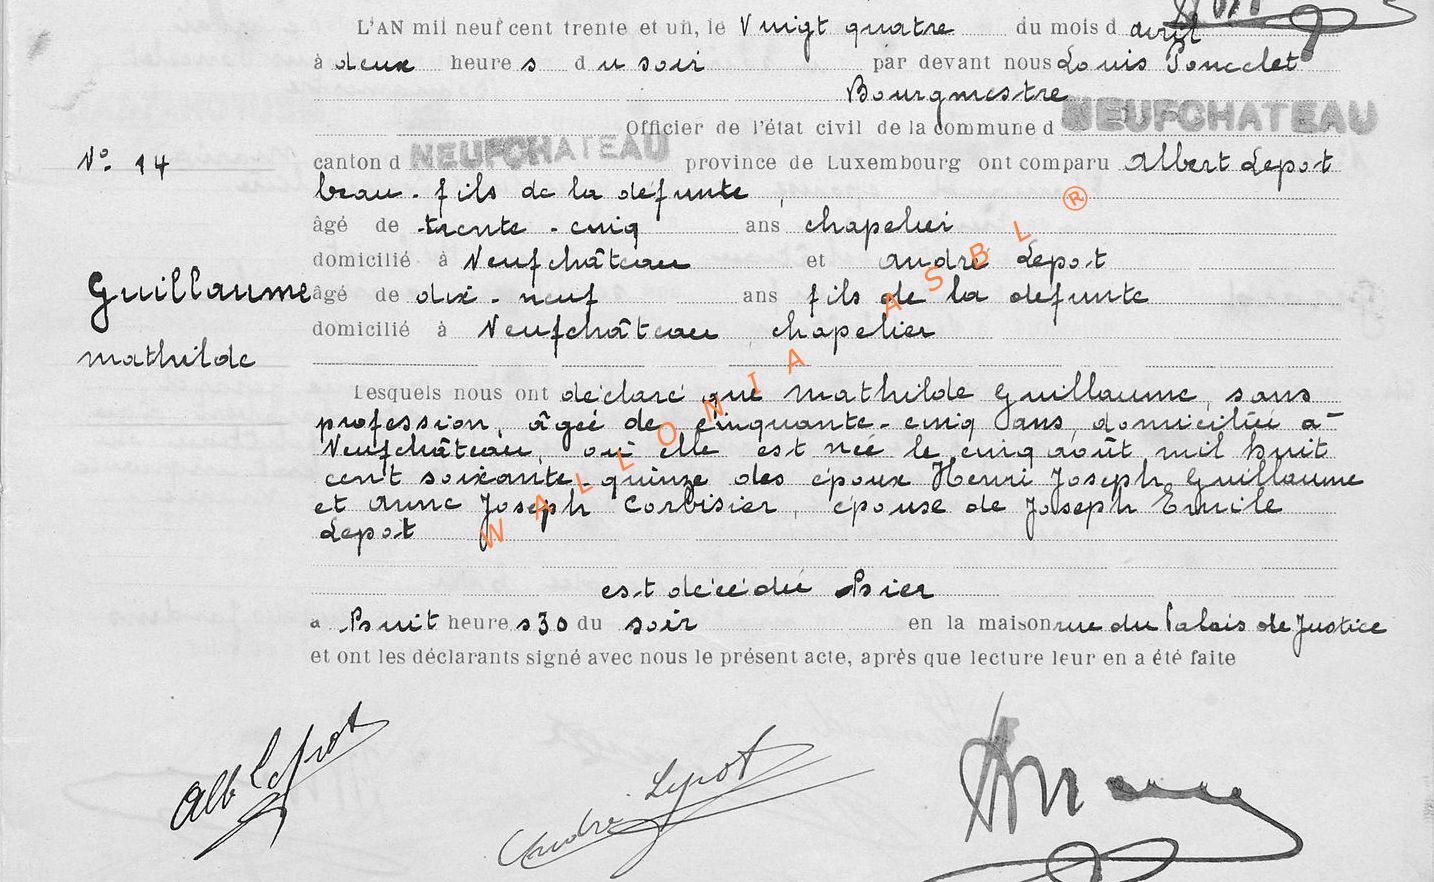 L'AN mil neuf cent trente et un, le Vingt quatre du mois d avril
à deux heure s d u soir par devant nous Louis Poncelet
Bourgmestre
Officier de l'état civil de la commune d NEUFCHATEAU
N° 14 canton d NEUFCHATEAU province de Luxembourg ont comparu Albert Lepot
beau-fils de la défunte,
âgé de trente-cinq ans chapelier
domicilié à Neufchâteau et André Lepot
Guillaume âgé de dix-neuf ans fils de la défunte
domicilié à Neufchâteau chapelier
Mathilde
Lesquels nous ont déclaré que Mathilde Guillaume, sans
profession, âgée de cinquante-cinq ans, domiciliée à
Neufchâteau, où elle est née le cinq août mil huit
cent soixante-quinze des époux Henri Joseph Guillaume
et Anne Joseph Corbisier, épouse de Joseph Emile
Lepot
est décédée hier
a huit heure s 30 du soir en la maison rue du Palais de Justice
et ont les déclarants signé avec nous le présent acte, après que lecture leur en a été faite
Alb Lepot
André Lepot
WALLONIA ASBL ®